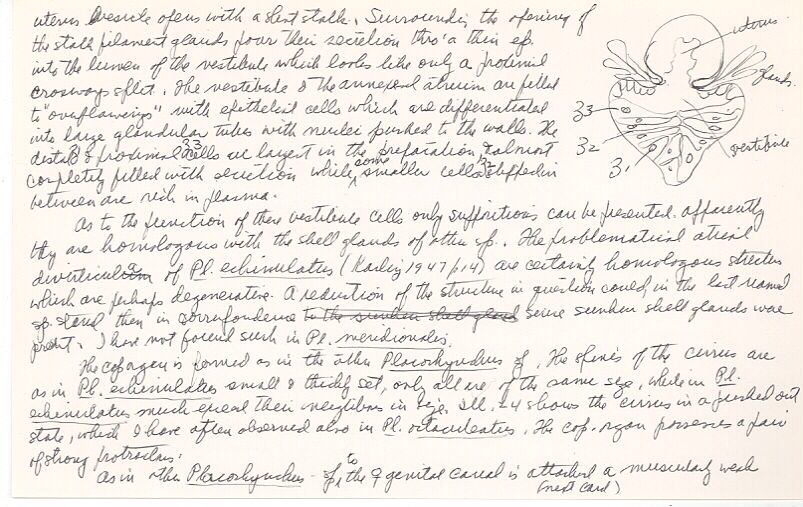 uterus vesicle opens with a short stalk. Surrounding the opening of
the stalk filament glands pour their secretion thro' a thin ep.
into the lumen of the vestibule which looks like only a proximal
crossways split. The vestibule & the annexed atrium are filled
to "overflowing" with epithelial cells which are differentiated
into large glandular tubes with nuclei pushed to the walls. The
distal & proximal 33 cells are largest in the preparation, & almost
completely filled with secretion while some smaller cells 32
between are rich in plasma.
As to the function of these vestibule cells only suppositions can be presented. apparently
they are homologous with the shell glands of other sp. The problematical atrial
diverticula of Pl. echinulatus (Karling 1947 p14) are certainly homologous structures
which are perhaps degenerative. A reduction of the structure in question could, in the last named
sp. stand then in correspondence to the sunken shell gland since sunken shell glands were
present. I have not found such in Pl. meridionalis.
The cop organ is formed as in the other Placorhynchus sp. The spines of the cirrus are
as in Pl. echinulatus small & thickly set, only all are of the same size, while in Pl.
echinulatus much exceed their neighbors in size. Ill. 24 shows the cirrus in a pushed out
state, which I have often observed also in Pl. octaculeatus. The cop. organ possesses a pair
of strong protractors.
As in other Placorhynchus - sp. to the ♀ genital canal is attached a muscularly weak
(next card)
uterus
glands
33
32
31
vestibule